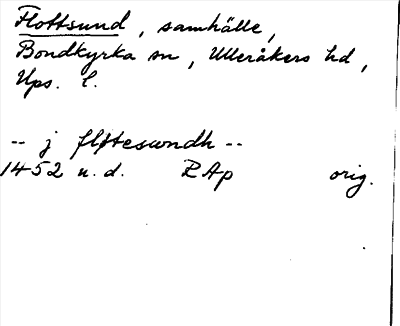 Flottsund, samhälle,
Bondkyrka sn, Ulleråkers hd,
Ups. l.
-- j fløteswndh --
1452 u.d. RAp orig.